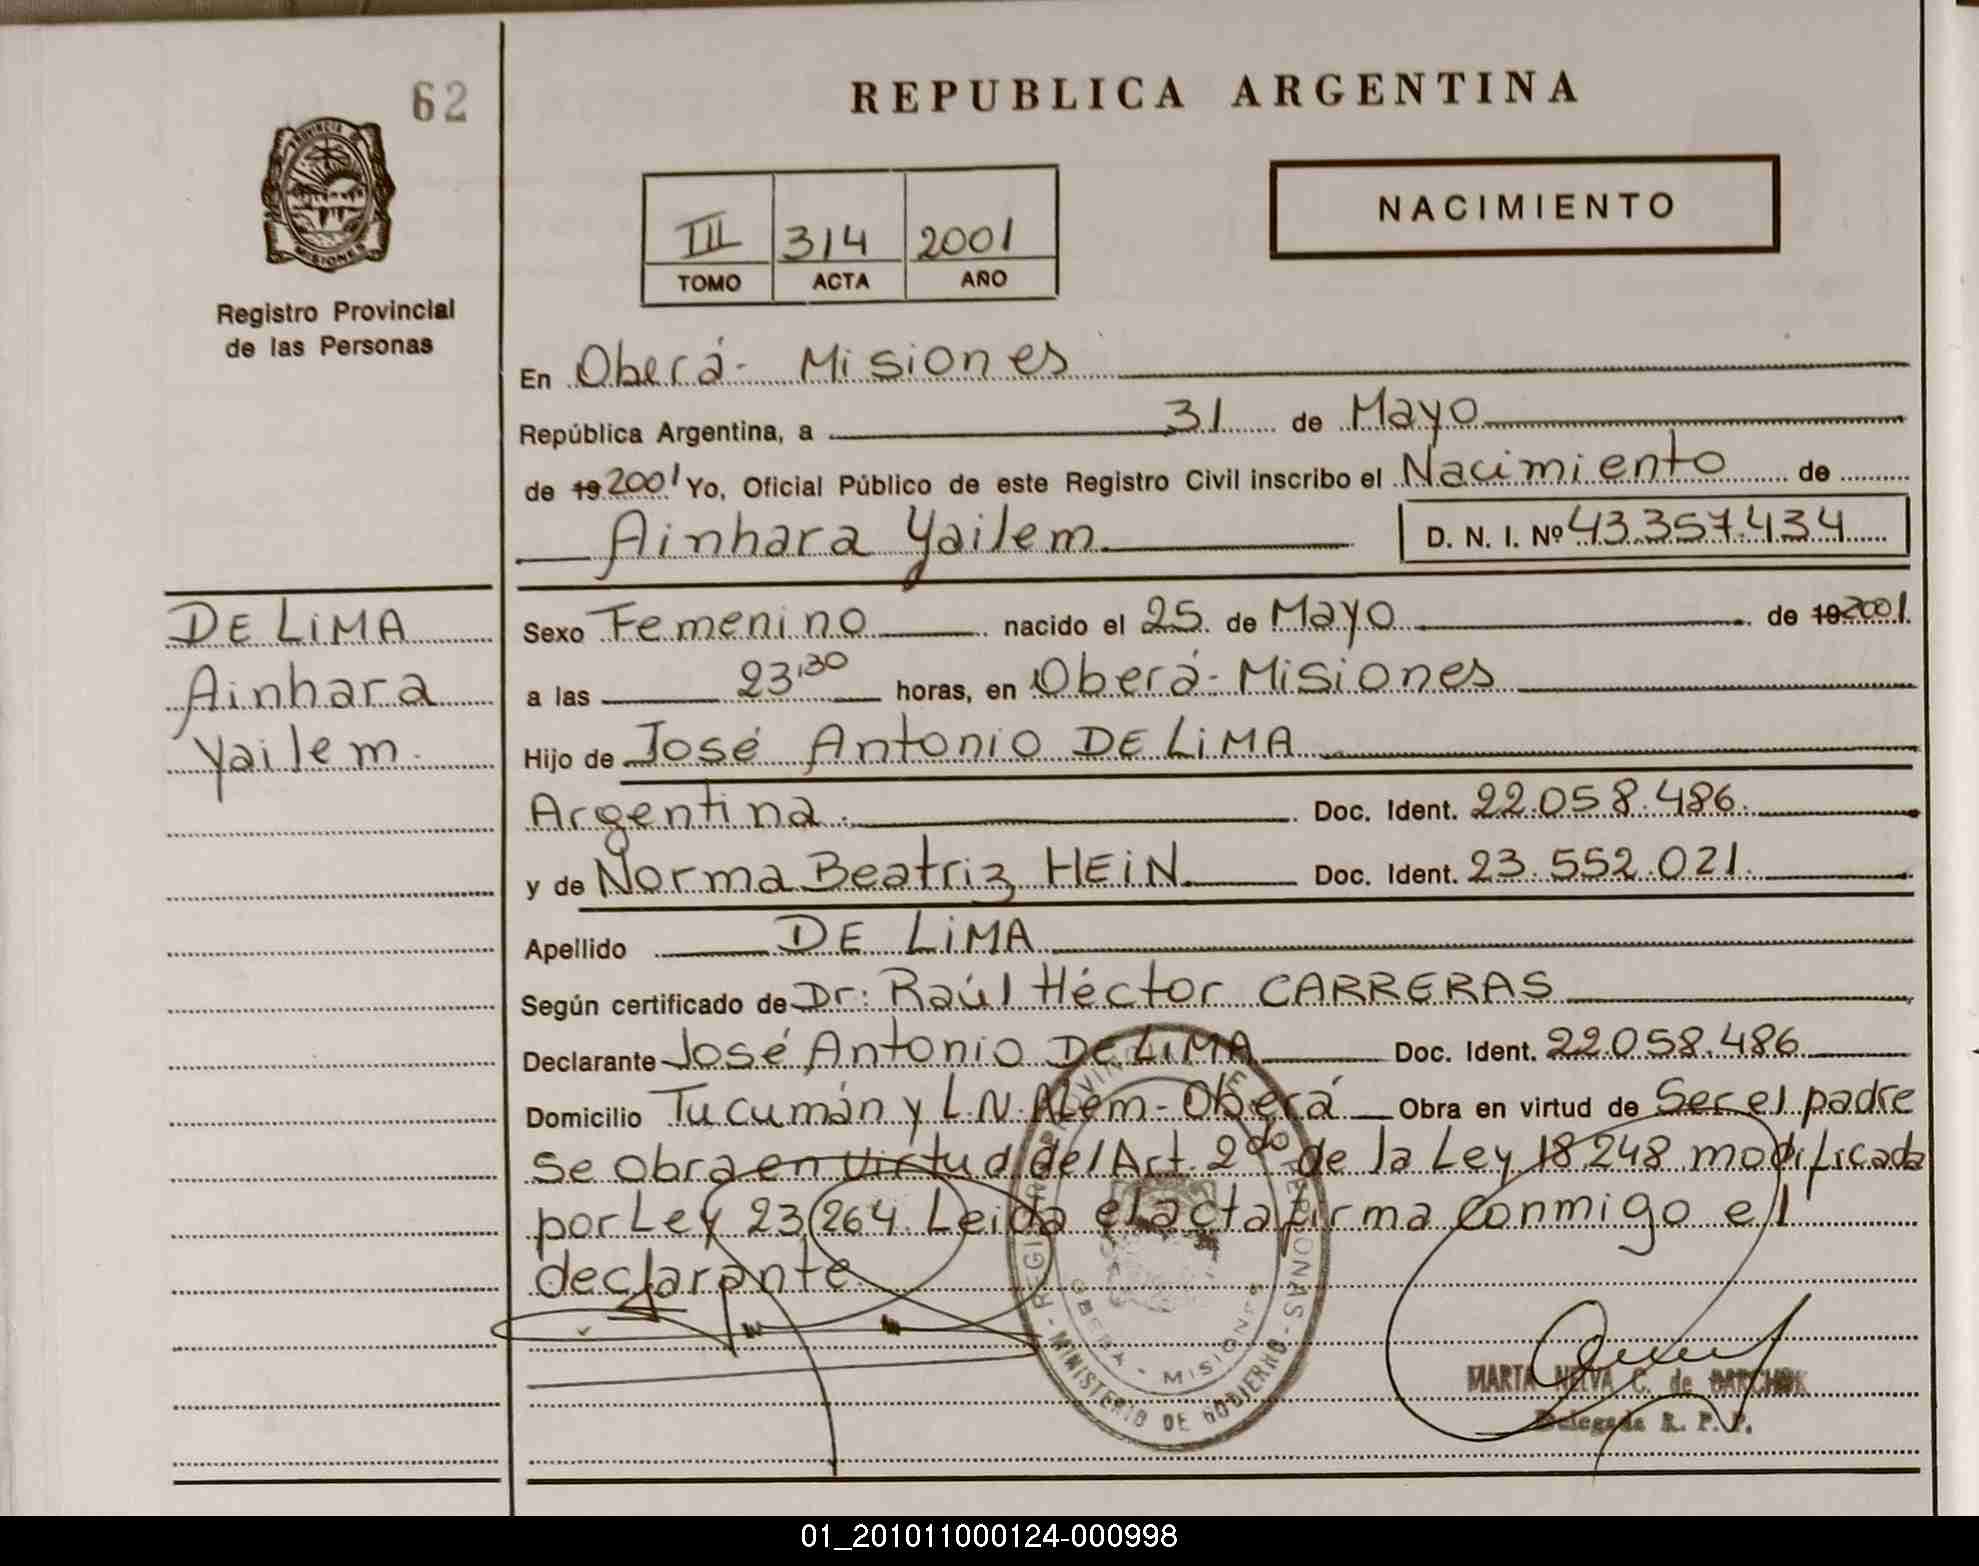 62
PROVINCIA DE
MISIONES
Registro Provincial
de las Personas
DE LiMA
Ainhara
Yailem.
REPUBLICA ARGENTINA
III 314 2001
TOMO ACTA AÑO
NACIMIENTO
En Oberá- Misiones
República Argentina, a 31 de Mayo
de 19 2001 Yo, Oficial Público de este Registro Civil inscribo el Nacimiento de
Ainhara Yailem D. N. I. Nº 43.357.434
Sexo Femenino nacido el 25 de Mayo de 19 2001.
a las 23,30 horas, en Oberá- Misiones
Hijo de José Antonio DE LiMA
Argentina. Doc. Ident. 22.058.486.
y de Norma Beatriz HEiN Doc. Ident. 23.552.021.
Apellido DE LiMA
Según certificado de Dr: Raúl Héctor CARRERAS
Declarante José Antonio DE LiMA Doc. Ident. 22.058.486
Domicilio Tucumán y L.N. Alem- Oberá Obra en virtud de Ser el padre
se obra en virtud del Art. 2do de la Ley 18.248 modificada
por Ley 23.264. Leida el acta firma conmigo el
declarante.
OBERA - MISIONES
- MINISTERIO DE GOBIERNO -
MARTA NELVA C. de
Delegada R. P. P.
01_201011000124-000998